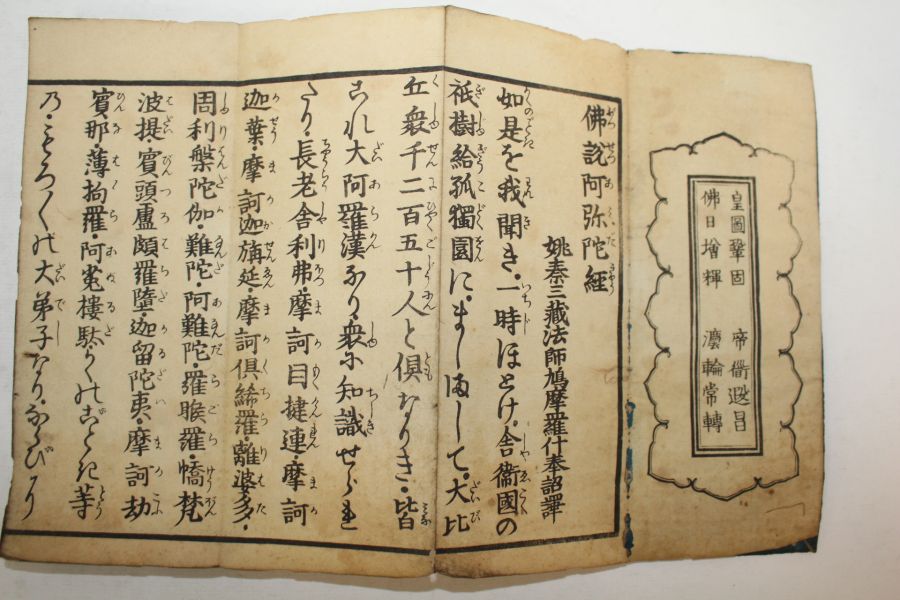 皇圖鞏固 帝衜遐昌
佛日增輝 灋輪常轉
佛說阿弥陀經
姚秦三藏法師鳩摩羅什奉詔譯
如是を我聞き・一時ほとけ・舎衞國の
祇樹給孤獨園に・ましまして・大比
丘衆千二百五十人と俱なりき・皆
これ大阿羅漢なり・衆に知識せられ
たり・長老舎利弗・摩訶目揵連・摩訶
迦葉・摩訶迦旃延・摩訶俱絺羅・離婆多・
周利槃陀伽・難陀・阿難陀・羅睺羅・憍梵
波提・賓頭盧頗羅墮・迦留陀夷・摩訶劫
賓那・薄拘羅・阿㝹樓駄・かくのごとき等
乃・もろ〱の大弟子なり・ならびに